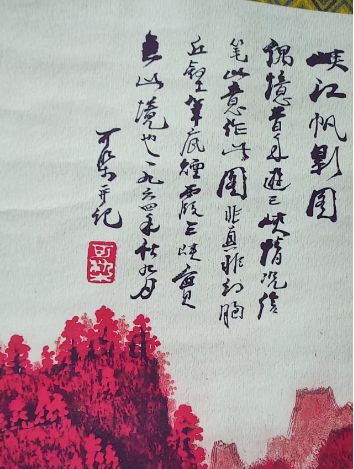 峡江帆影图
偶忆昔年游三峡情况信
笔以意作此图非真非幻胸
丘壑笔底烟霞三峡实
无此境也一九六四年秋九月
可染并记
可染